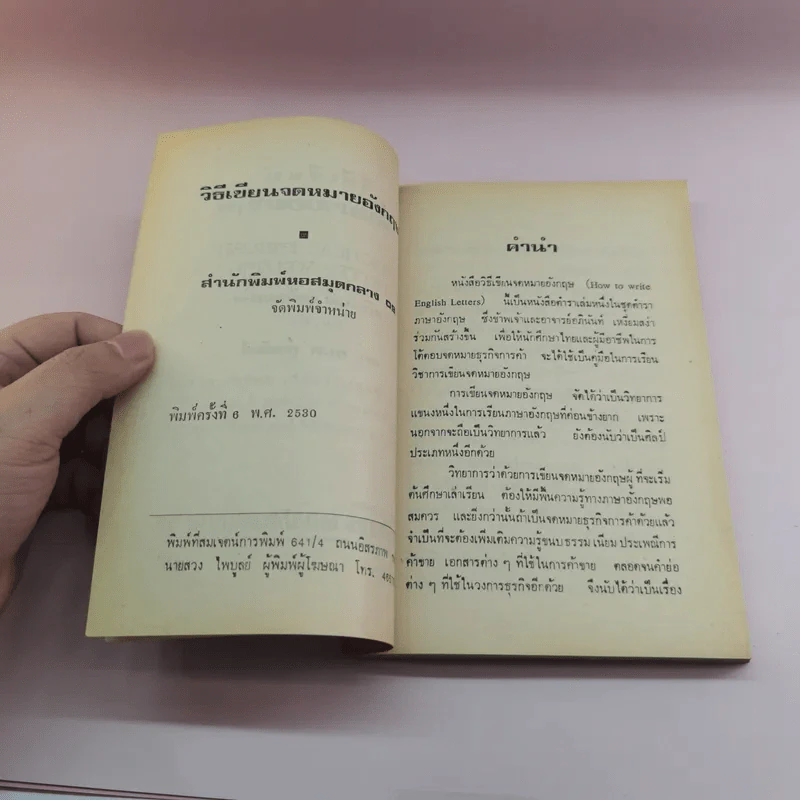 วิธีเขียนจดหมายอังกฤษ
สำนักพิมพ์หอสมุดกลาง 09
จัดพิมพ์จำหน่าย
พิมพ์ครั้งที่ 6 พ.ศ. 2530
พิมพ์ที่สมเจตน์การพิมพ์ 641/4 ถนนอิสรภาพ
นายสวง ไพบูลย์ ผู้พิมพ์ผู้โฆษณา โทร.
คำนำ
หนังสือวิธีเขียนจดหมายอังกฤษ (How to write
English Letters) นี้เป็นหนังสือตำราเล่มหนึ่งในชุดตำรา
ภาษาอังกฤษ ซึ่งข้าพเจ้าและอาจารย์อภินันท์ เหงี่ยมสง่า
ร่วมกันสร้างขึ้น เพื่อให้นักศึกษาไทยและผู้มีอาชีพในการ
โต้ตอบจดหมายธุรกิจการค้า จะได้ใช้เป็นคู่มือในการเรียน
วิชาการเขียนจดหมายอังกฤษ
การเขียนจดหมายอังกฤษ จัดได้ว่าเป็นวิทยาการ
แขนงหนึ่งในการเรียนภาษาอังกฤษที่ค่อนข้างยาก เพราะ
นอกจากจะถือเป็นวิทยาการแล้ว ยังต้องนับว่าเป็นศิลป์
ประเภทหนึ่งอีกด้วย
วิทยาการว่าด้วยการเขียนจดหมายอังกฤษผู้ที่จะเริ่ม
ต้นศึกษาเล่าเรียน ต้องให้มีพื้นความรู้ทางภาษาอังกฤษพอ
สมควร และยิ่งกว่านั้นถ้าเป็นจดหมายธุรกิจการค้าด้วยแล้ว
จำเป็นที่จะต้องเพิ่มเติมความรู้ขนบธรรมเนียมประเพณีการ
ค้าขาย เอกสารต่าง ๆ ที่ใช้ในการค้าขาย ตลอดจนคำย่อ
ต่าง ๆ ที่ใช้ในวงการธุรกิจอีกด้วย จึงนับได้ว่าเป็นเรื่อง